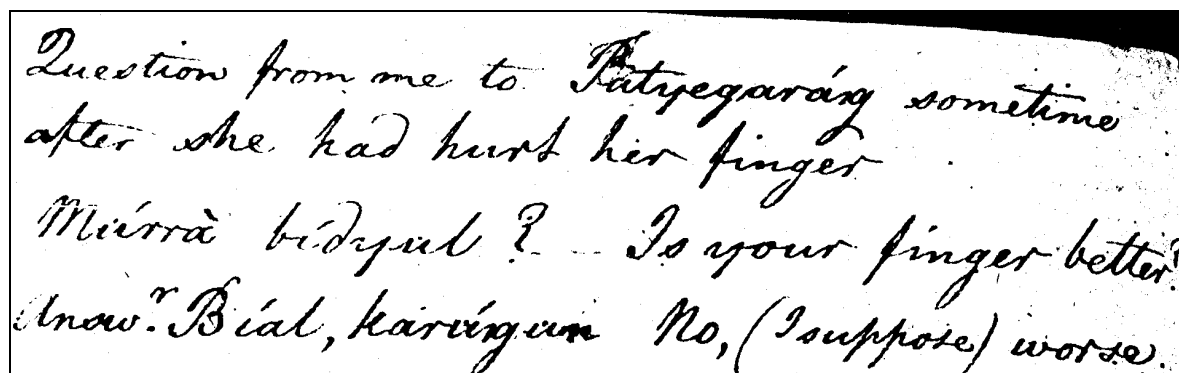 Question from me to Patyegaráng sometime
after she had hurt her finger
Múrrà bídyul? Is your finger better?
Answ.r Bíal, karángun No, (I suppose) worse.